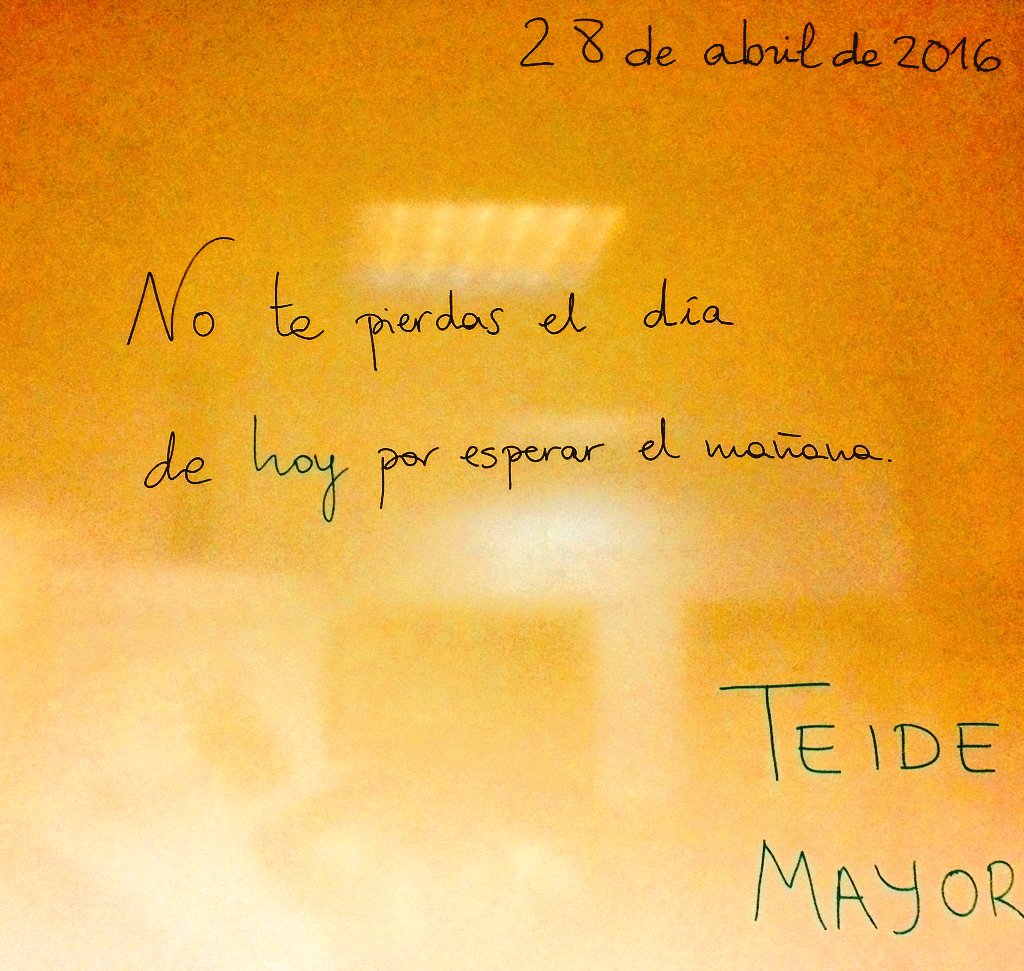 28 de abril de 2016
No te pierdas el día
de hoy por esperar el mañana.
TEIDE
MAYOR